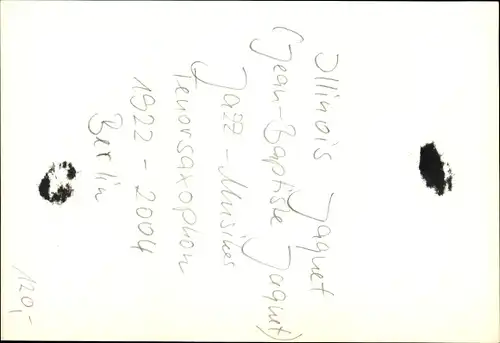 Illinois Jaquet
(Jean-Baptiste Jaquet)
Jazz-Musiker
Tenorsaxophon
1922 - 2004
Berlin
120,-